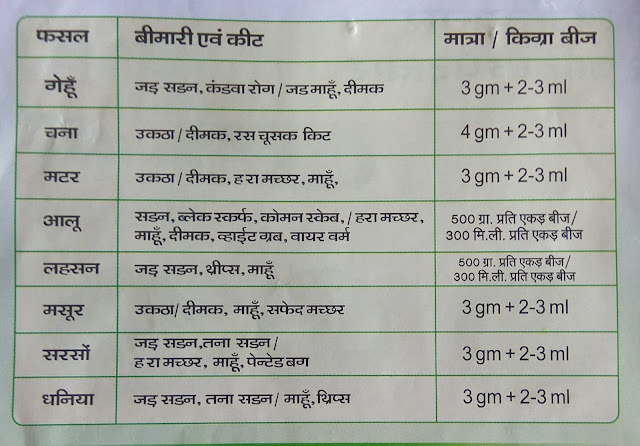 फसल बीमारी एवं कीट मात्रा / किग्रा बीज
गेहूँ जड़ सडन, कंडवा रोग / जड माहूँ, दीमक 3 gm + 2-3 ml
चना उकठा / दीमक, रस चूसक किट 4 gm + 2-3 ml
मटर उकठा / दीमक, हरा मच्छर, माहूँ, 3 gm + 2-3 ml
आलू सडन, ब्लेक स्कर्फ, कोमन स्केब, / हरा मच्छर, 500 ग्रा. प्रति एकड़ बीज/
माहूँ, दीमक, व्हाईट ग्रब, वायर वर्म 300 मि.ली. प्रति एकड़ बीज
लहसन जड़ सडन, थ्रीप्स, माहूँ 500 ग्रा. प्रति एकड़ बीज/
300 मि.ली. प्रति एकड़ बीज
मसूर उकठा/ दीमक, माहूँ, सफेद मच्छर 3 gm + 2-3 ml
सरसों जड़ सडन, तना सडन /
हरा मच्छर, माहूँ, पेन्टेड बग 3 gm + 2-3 ml
धनिया जड़ सडन, तना सडन/ माहूँ, थ्रिप्स 3 gm + 2-3 ml